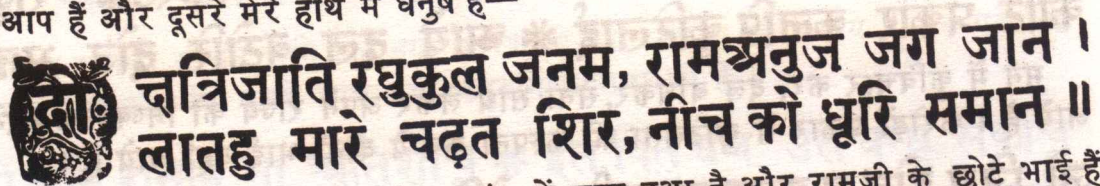 आप हैं और दूसरे मेरे हाथ में धनुष है—
दो
क्षत्रिजाति रघुकुल जनम, रामअनुज जग जान ।
लातहु मारे चढ़त शिर, नीच को धूरि समान ॥
है और रामजी के छोटे भाई हैं